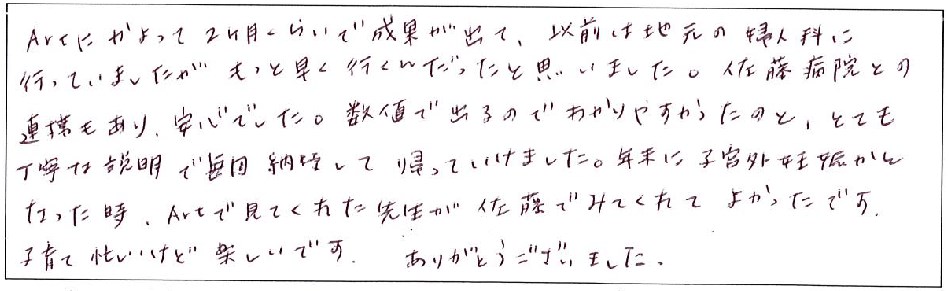 Artにかよって2ヶ月くらいで成果が出て、以前は地元の婦人科に
行っていましたがもっと早く行くんだったと思いました。佐藤病院との
連携もあり、安心でした。数値で出るのでわかりやすかったのと、とても
丁寧な説明で毎回納得して帰っていけました。年末に子宮外妊娠かと
なった時、Artで見てくれた先生が佐藤でみてくれてよかったです。
子育て忙しいけど楽しいです。ありがとうございました。